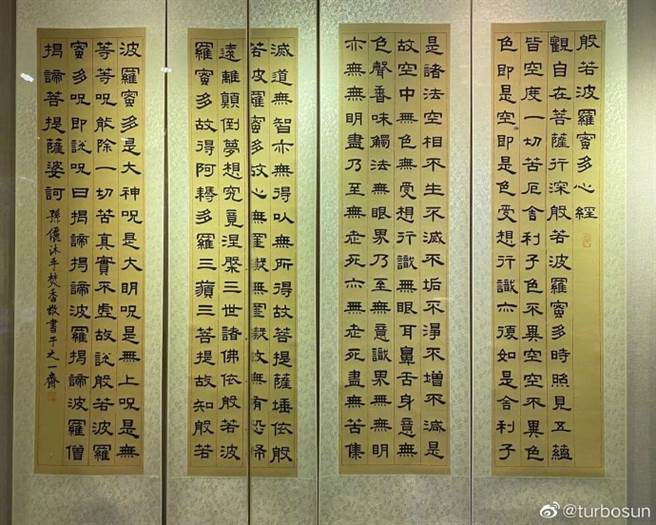 般若波羅蜜多心經
觀自在菩薩行深般若波羅蜜多時照見五蘊
皆空度一切苦厄舍利子色不異空空不異色
色即是空即是色受想行識亦復如是舍利子
是諸法空相不生不滅不垢不淨不增不減是
故空中無色無受想行識無眼耳鼻舌身意無
色聲香味觸法無眼界乃至無意識界無無明
亦無無明盡乃至無老死亦無老死盡無苦集
滅道無智亦無得以無所得故菩提薩埵依般
若波羅蜜多故心無罣礙無罣礙故無有恐怖
遠離顛倒夢想究竟涅槃三世諸佛依般若波
羅蜜多故得阿耨多羅三藐三菩提故知般若
波羅蜜多是大神呪是大明呪是無上呪是無
等等呪能除一切苦真實不虛故說般若波羅
蜜多呪即說呪曰揭諦揭諦波羅揭諦波羅僧
揭諦菩提薩婆訶 孫沐手焚香敬書于之一齋
@turbosun